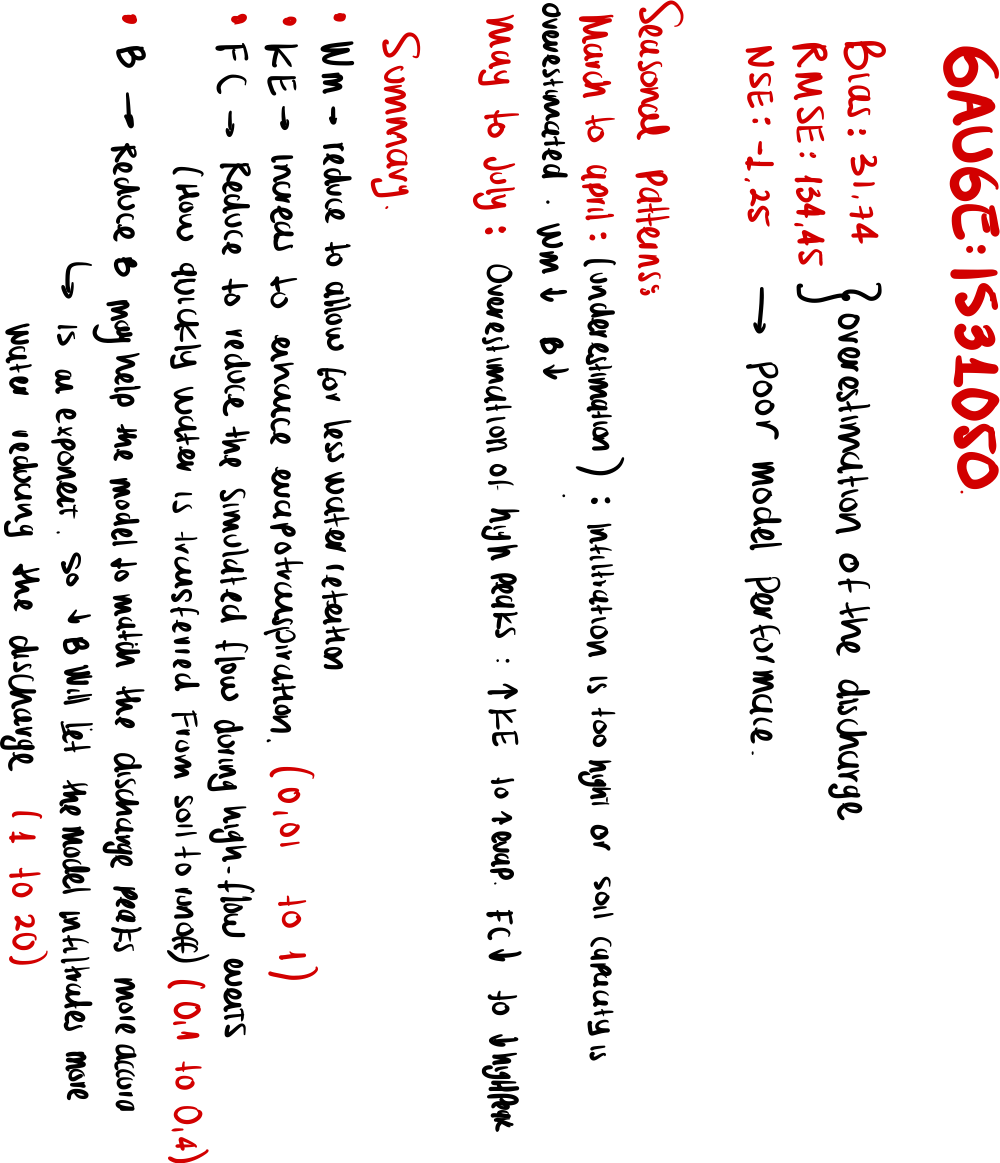 GAUGE: IS31050.
Bias: 31,74
RMSE: 134,45 } { overestimation of the discharge
NSE: -1,25 → Poor model performace.
Seasonal patterns:
March to april: (underestimation) : infiltration is too hight or soil capacity is
overestimated. Wm ↓ B ↓
May to July : Overestimation of high peaks : ↑ KE to ↑ evap. FC ↓ to ↓ highpeak
Summary.
• Wm → reduce to allow for less water retention
• KE → Increas to enhance evapotranspiration. (0,01 to 1)
• FC → Reduce to reduce the simulated flow during high-flow events
(How quickly water is transferred From soil to runoff) (0,1 to 0,4)
• B → Reduce B may help the model to match the discharge peaks more accura
↳ is as exponent. so ↓ B will let the model infiltrates more
water reducing the discharge (1 to 20)